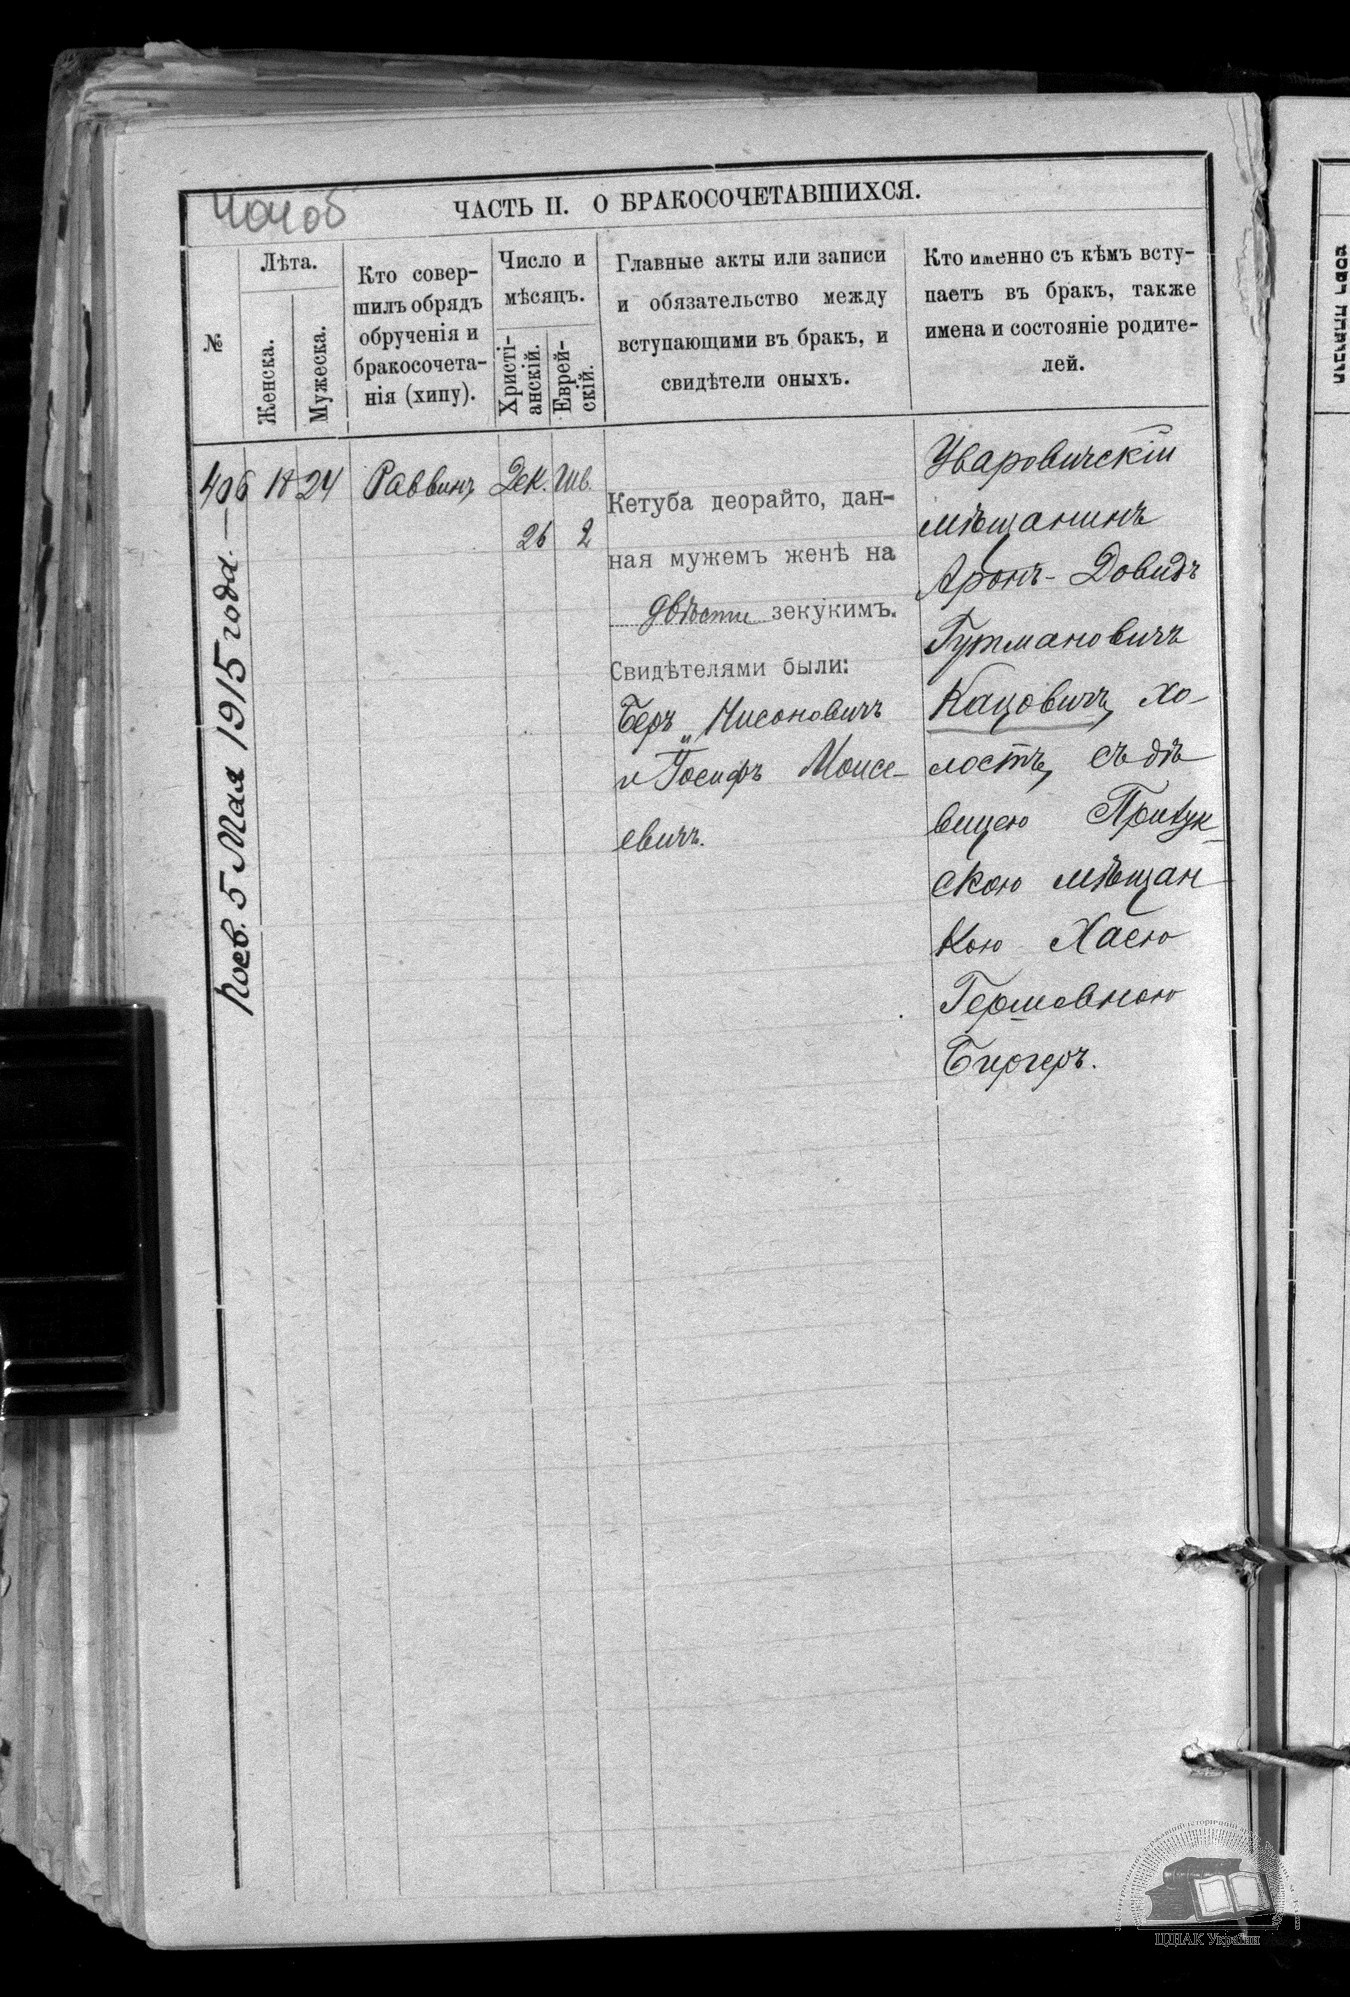 Чочоб
ЧАСТЬ II. О БРАКОСОЧЕТАВШИХСЯ.
№
Лѣта.
Женска.
Мужеска.
Кто совер-
шилъ обрядъ
обрученія и
бракосочета-
нія (хипу).
Число и
мѣсяцъ.
Христі-
анскій.
Еврей-
скій.
Главные акты или записи
и обязательство между
вступающими въ бракъ, и
свидѣтели оныхъ.
Кто именно съ кѣмъ всту-
паетъ въ бракъ, также
имена и состояніе родите-
лей.
406 18 24 Раввинъ Дек. Шв.
26 2
Кетуба деорайто, дан-
ная мужемъ женѣ на
двѣсти зекукимъ.
Свидѣтелями были:
Беръ Нисоновичъ
и Іосифъ Моисе-
евичъ.
Уваровичскій
мѣщанинъ
Аронъ-Довидъ
Гутмановичъ
Кацовичъ, хо-
лостъ, съ дѣ
вицею
скою мѣщан
кою Хасею
Гершовною
Бергеръ.
5 Мая 1915 года.—
ЦДІАК України